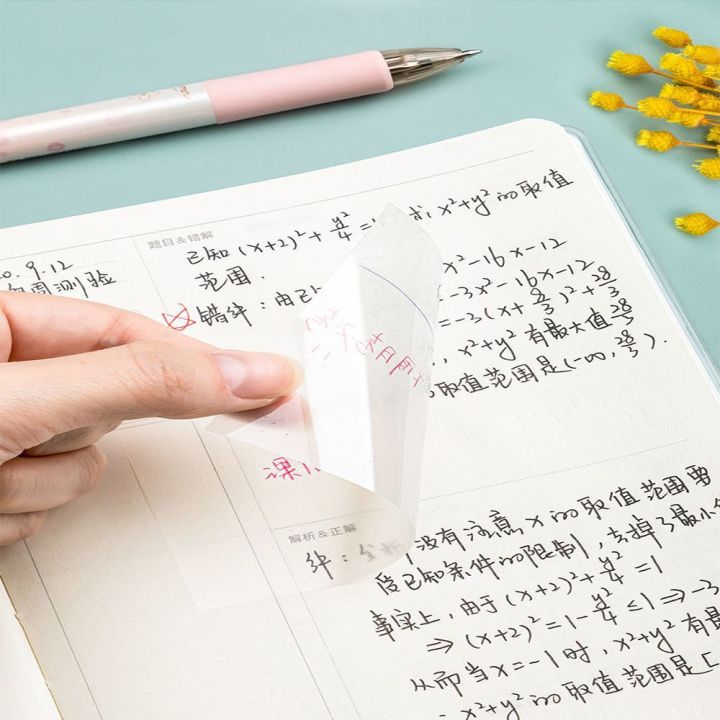 0.9.12
周测验
题目&错解
已知(x+2)²+y²/4=1, 求x²+y²的取值
范围.
错解:由已
x²-16x-12
=-3x²-16x-12
=-3(x+8/3)²+28/3
, x²+y²有最大值28/3
取值范围是(-∞, 28/3).
课
解析&正解
解:分析
没有注意x的取值范围要
受已知条件的限制, 丢掉了最小
事实上, 由于(x+2)²+y²/4=1
⇒(x+2)²=1-y²/4≤1⇒-3
从而当x=-1时, x²+y²有最
x²+y²的取值范围是[